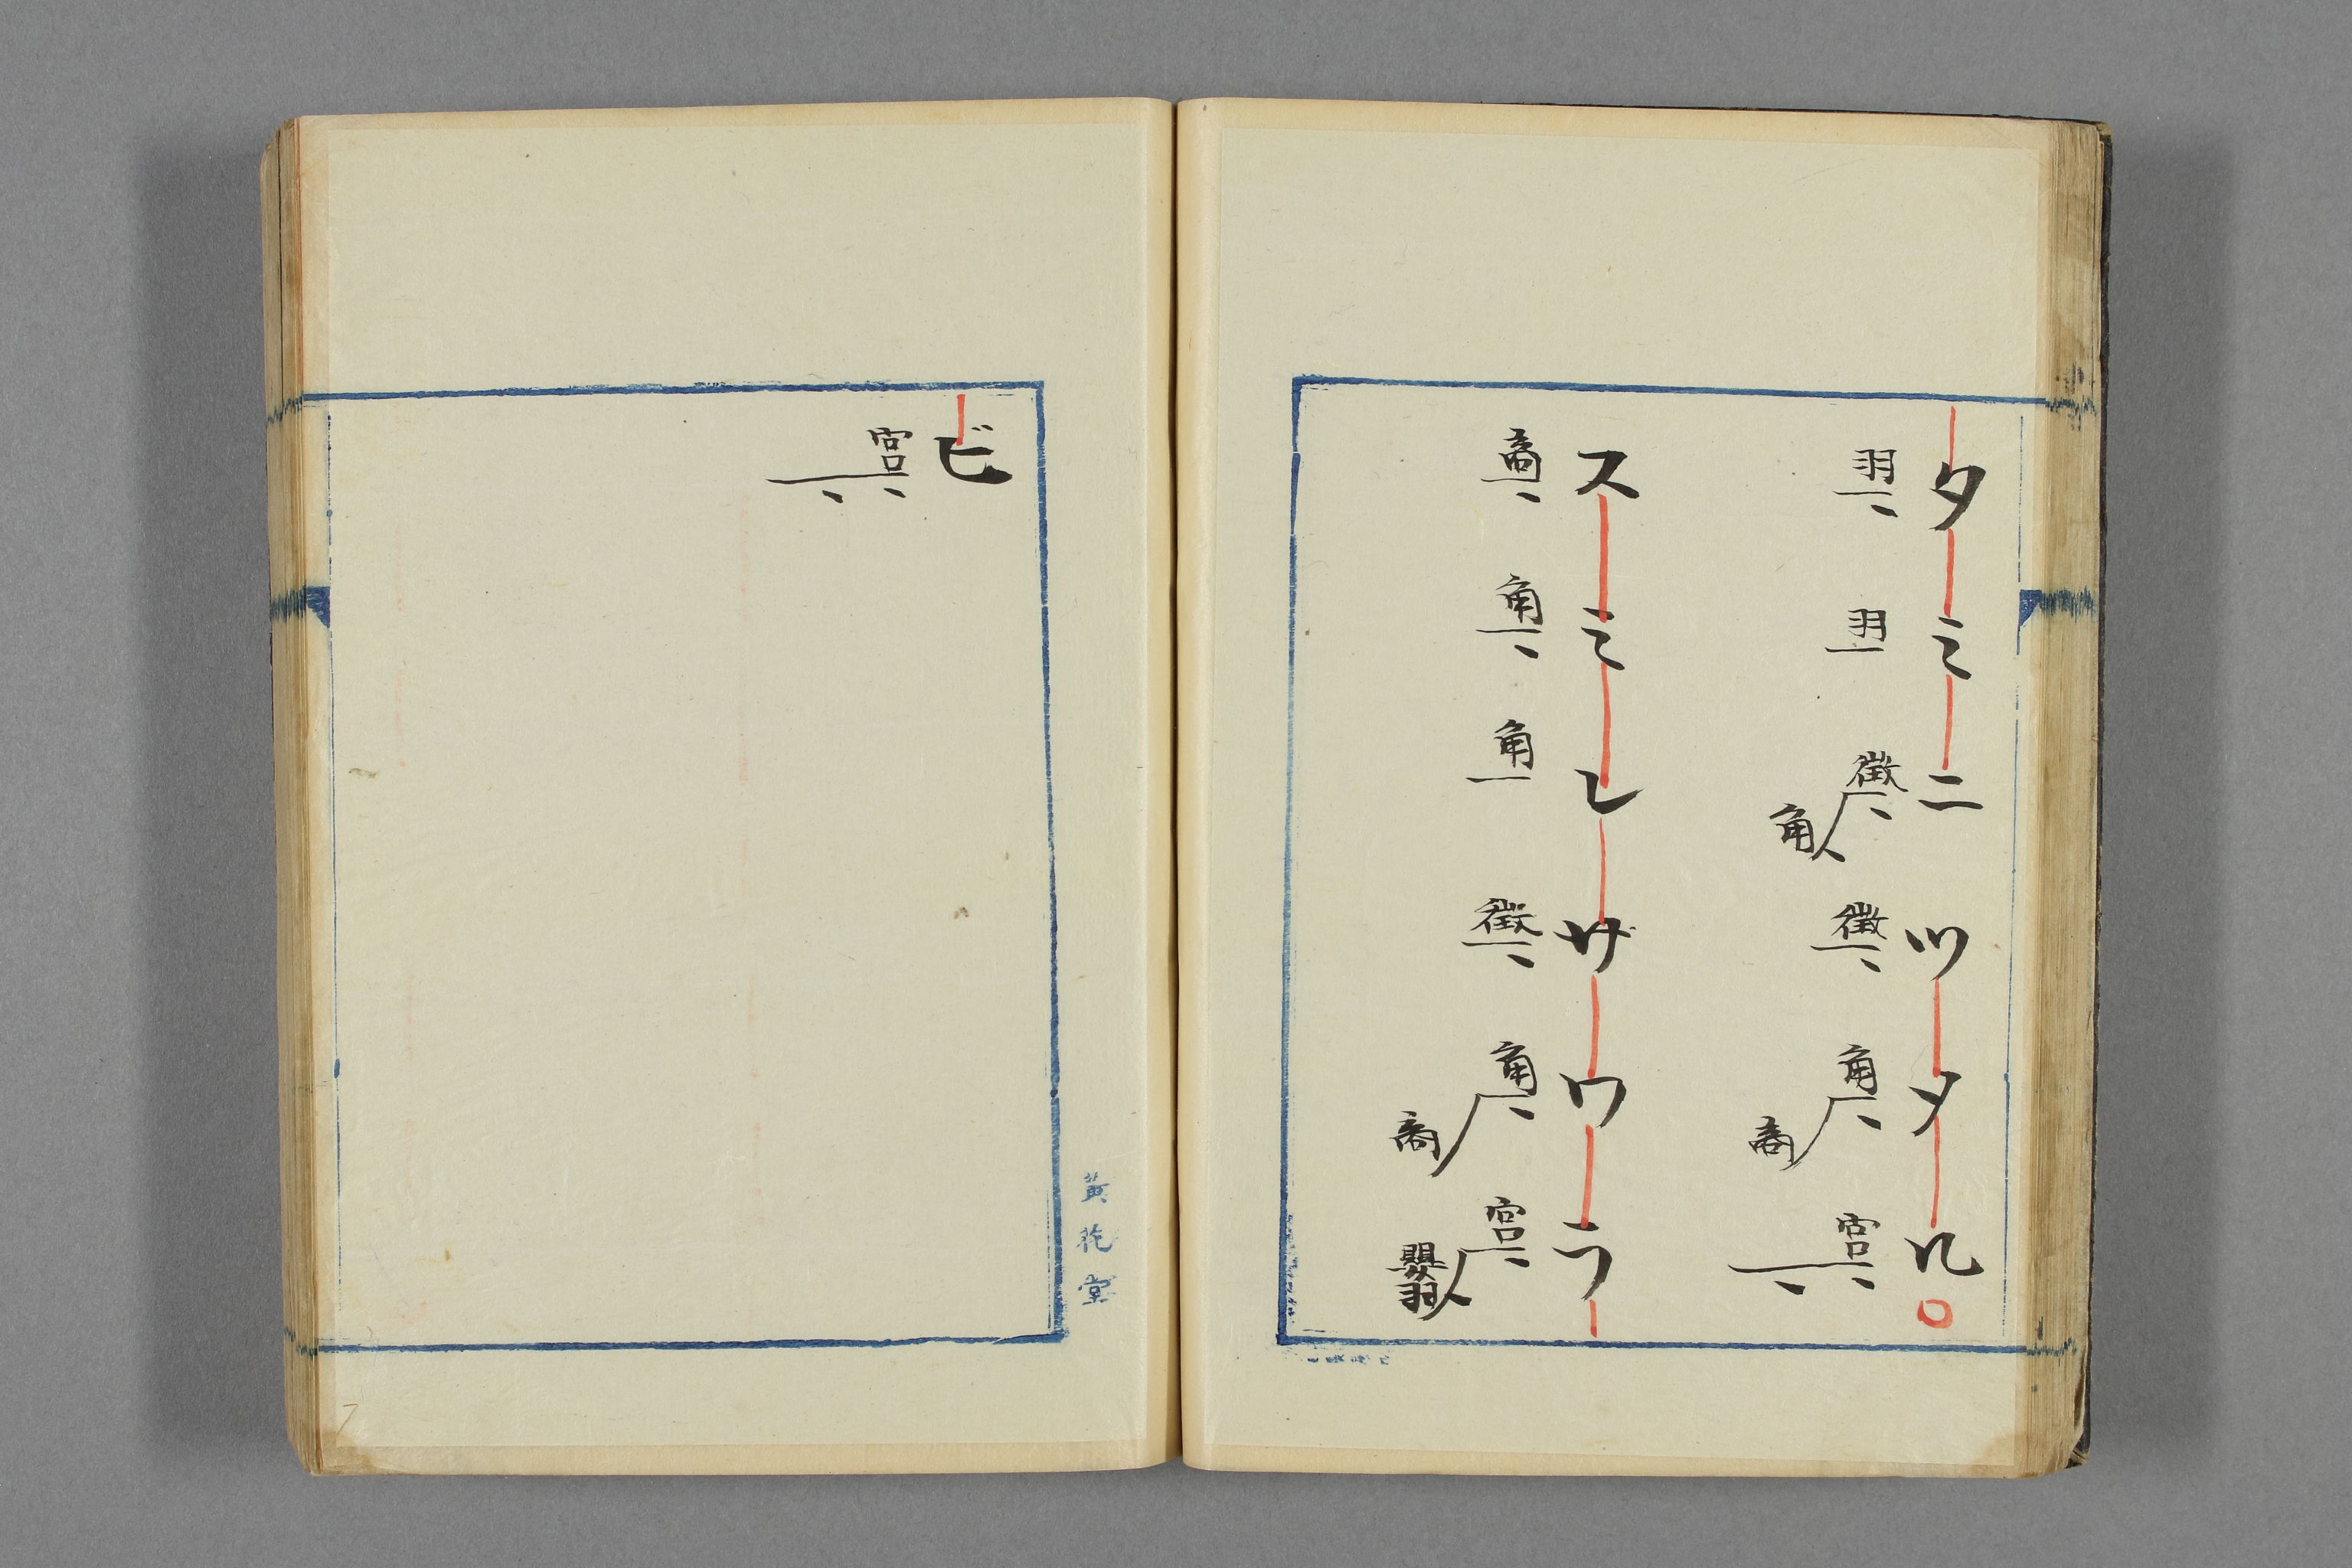 タミニツタル○
羽 羽 徴 角 徴 角 商 宮
スミレザワラ
商 角 角 徴 角 商 宮 嬰羽
ビ
宮
黄花堂